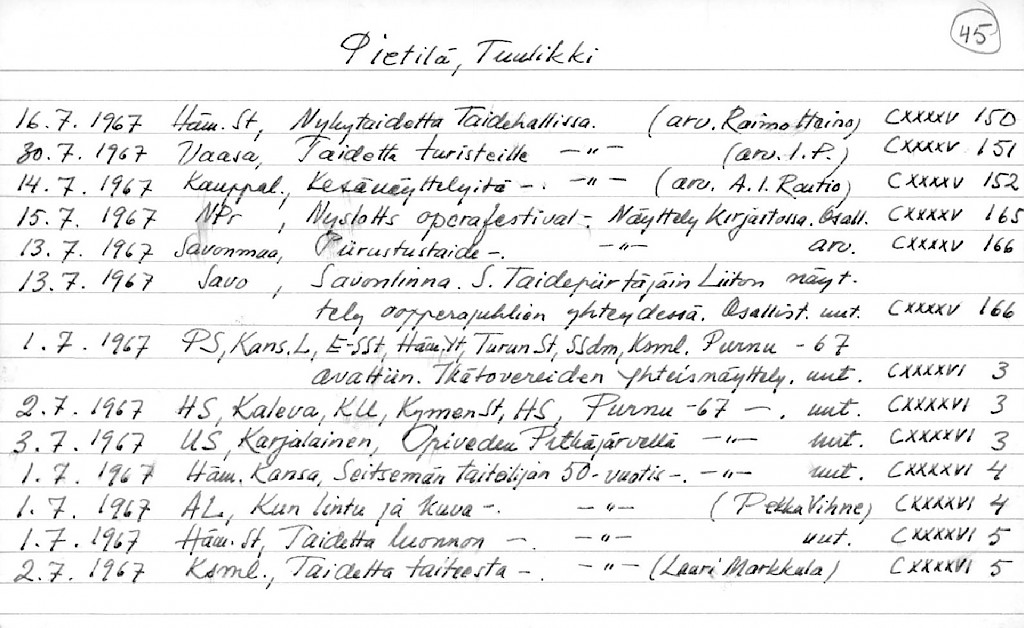 45
Pietilä, Tuulikki
16.7.1967 Häm. St, Nykytaidetta Taidehallissa. (arv. Raimo Heino) CXXXXV 150
30.7.1967 Vaasa, Taidetta turisteille -"- (arv. I.P.) CXXXXV 151
14.7.1967 Kauppal., Kesänäyttelyitä -. -"- (arv. A.I. Routio) CXXXXV 152
15.7.1967 NPr, Nyslotts operafestival - Näyttely Kirjastossa. Osall. CXXXXV 165
13.7.1967 Savonmaa, Piirustustaide -. -"- arv. CXXXXV 166
13.7.1967 Savo, Savonlinna. S. Taidepiirtäjäin Liiton näyt-
tely oopperajuhlien yhteydessä. Osallist. uut. CXXXXV 166
1.7.1967 PS, Kans.L, E-SSt, Häm.St, Turun St, SSdm, Ksml. Purnu - 67
avattiin. Ikätovereiden yhteisnäyttely. uut. CXXXXVI 3
2.7.1967 HS, Kaleva, KU, Kymen St, HS, Purnu -67 -. uut. CXXXXVI 3
3.7.1967 US, Karjalainen, Oriveden Pitkäjärvellä -"- uut. CXXXXVI 3
1.7.1967 Häm. Kansa, Seitsemän taiteilijan 50-vuotis -. -"- uut. CXXXXVI 4
1.7.1967 AL, Kun lintu ja kuva -. -"- (Pekka Vihne) CXXXXVI 4
1.7.1967 Häm. St, Taidetta luonnon -. -"- uut. CXXXXVI 5
2.7.1967 Ksml., Taidetta taiteesta -. -"- (Lauri Markkula) CXXXXVI 5